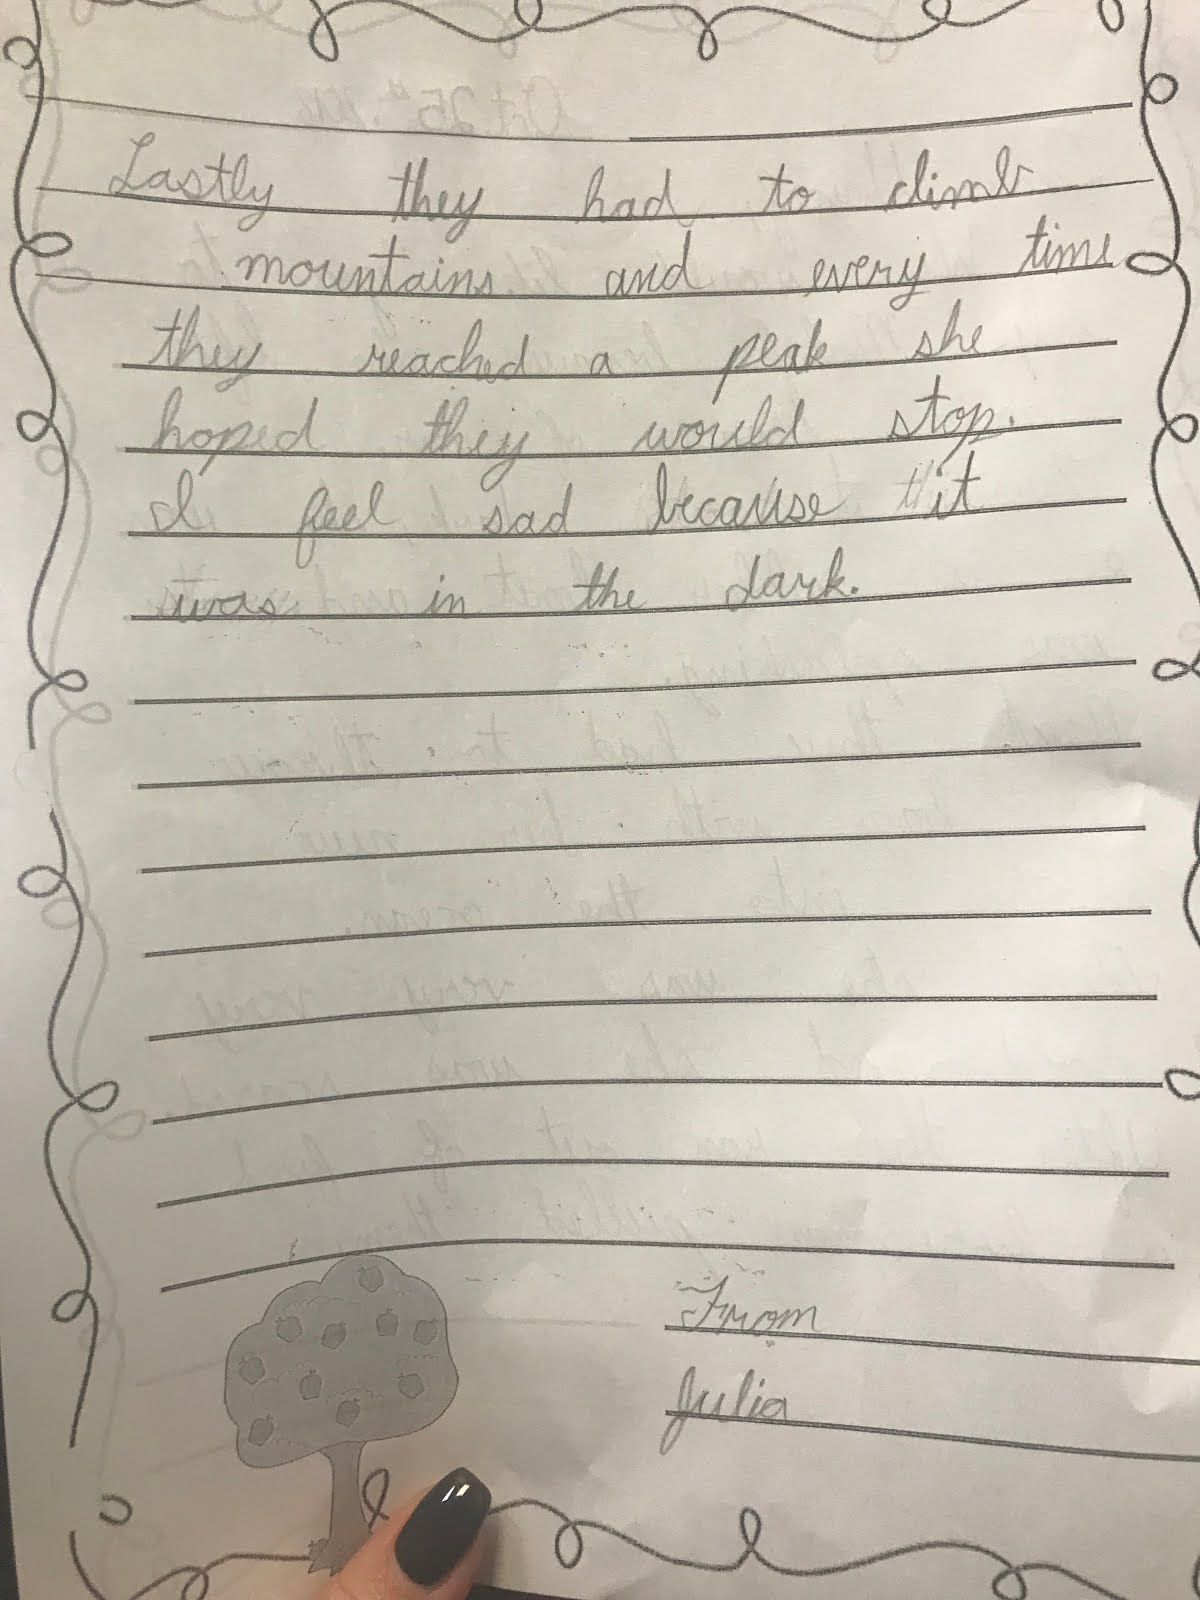 Lastly they had to climb
mountains and every time
they reached a peak she
hoped they would stop.
I feel sad because it
was in the dark.
From
Julia